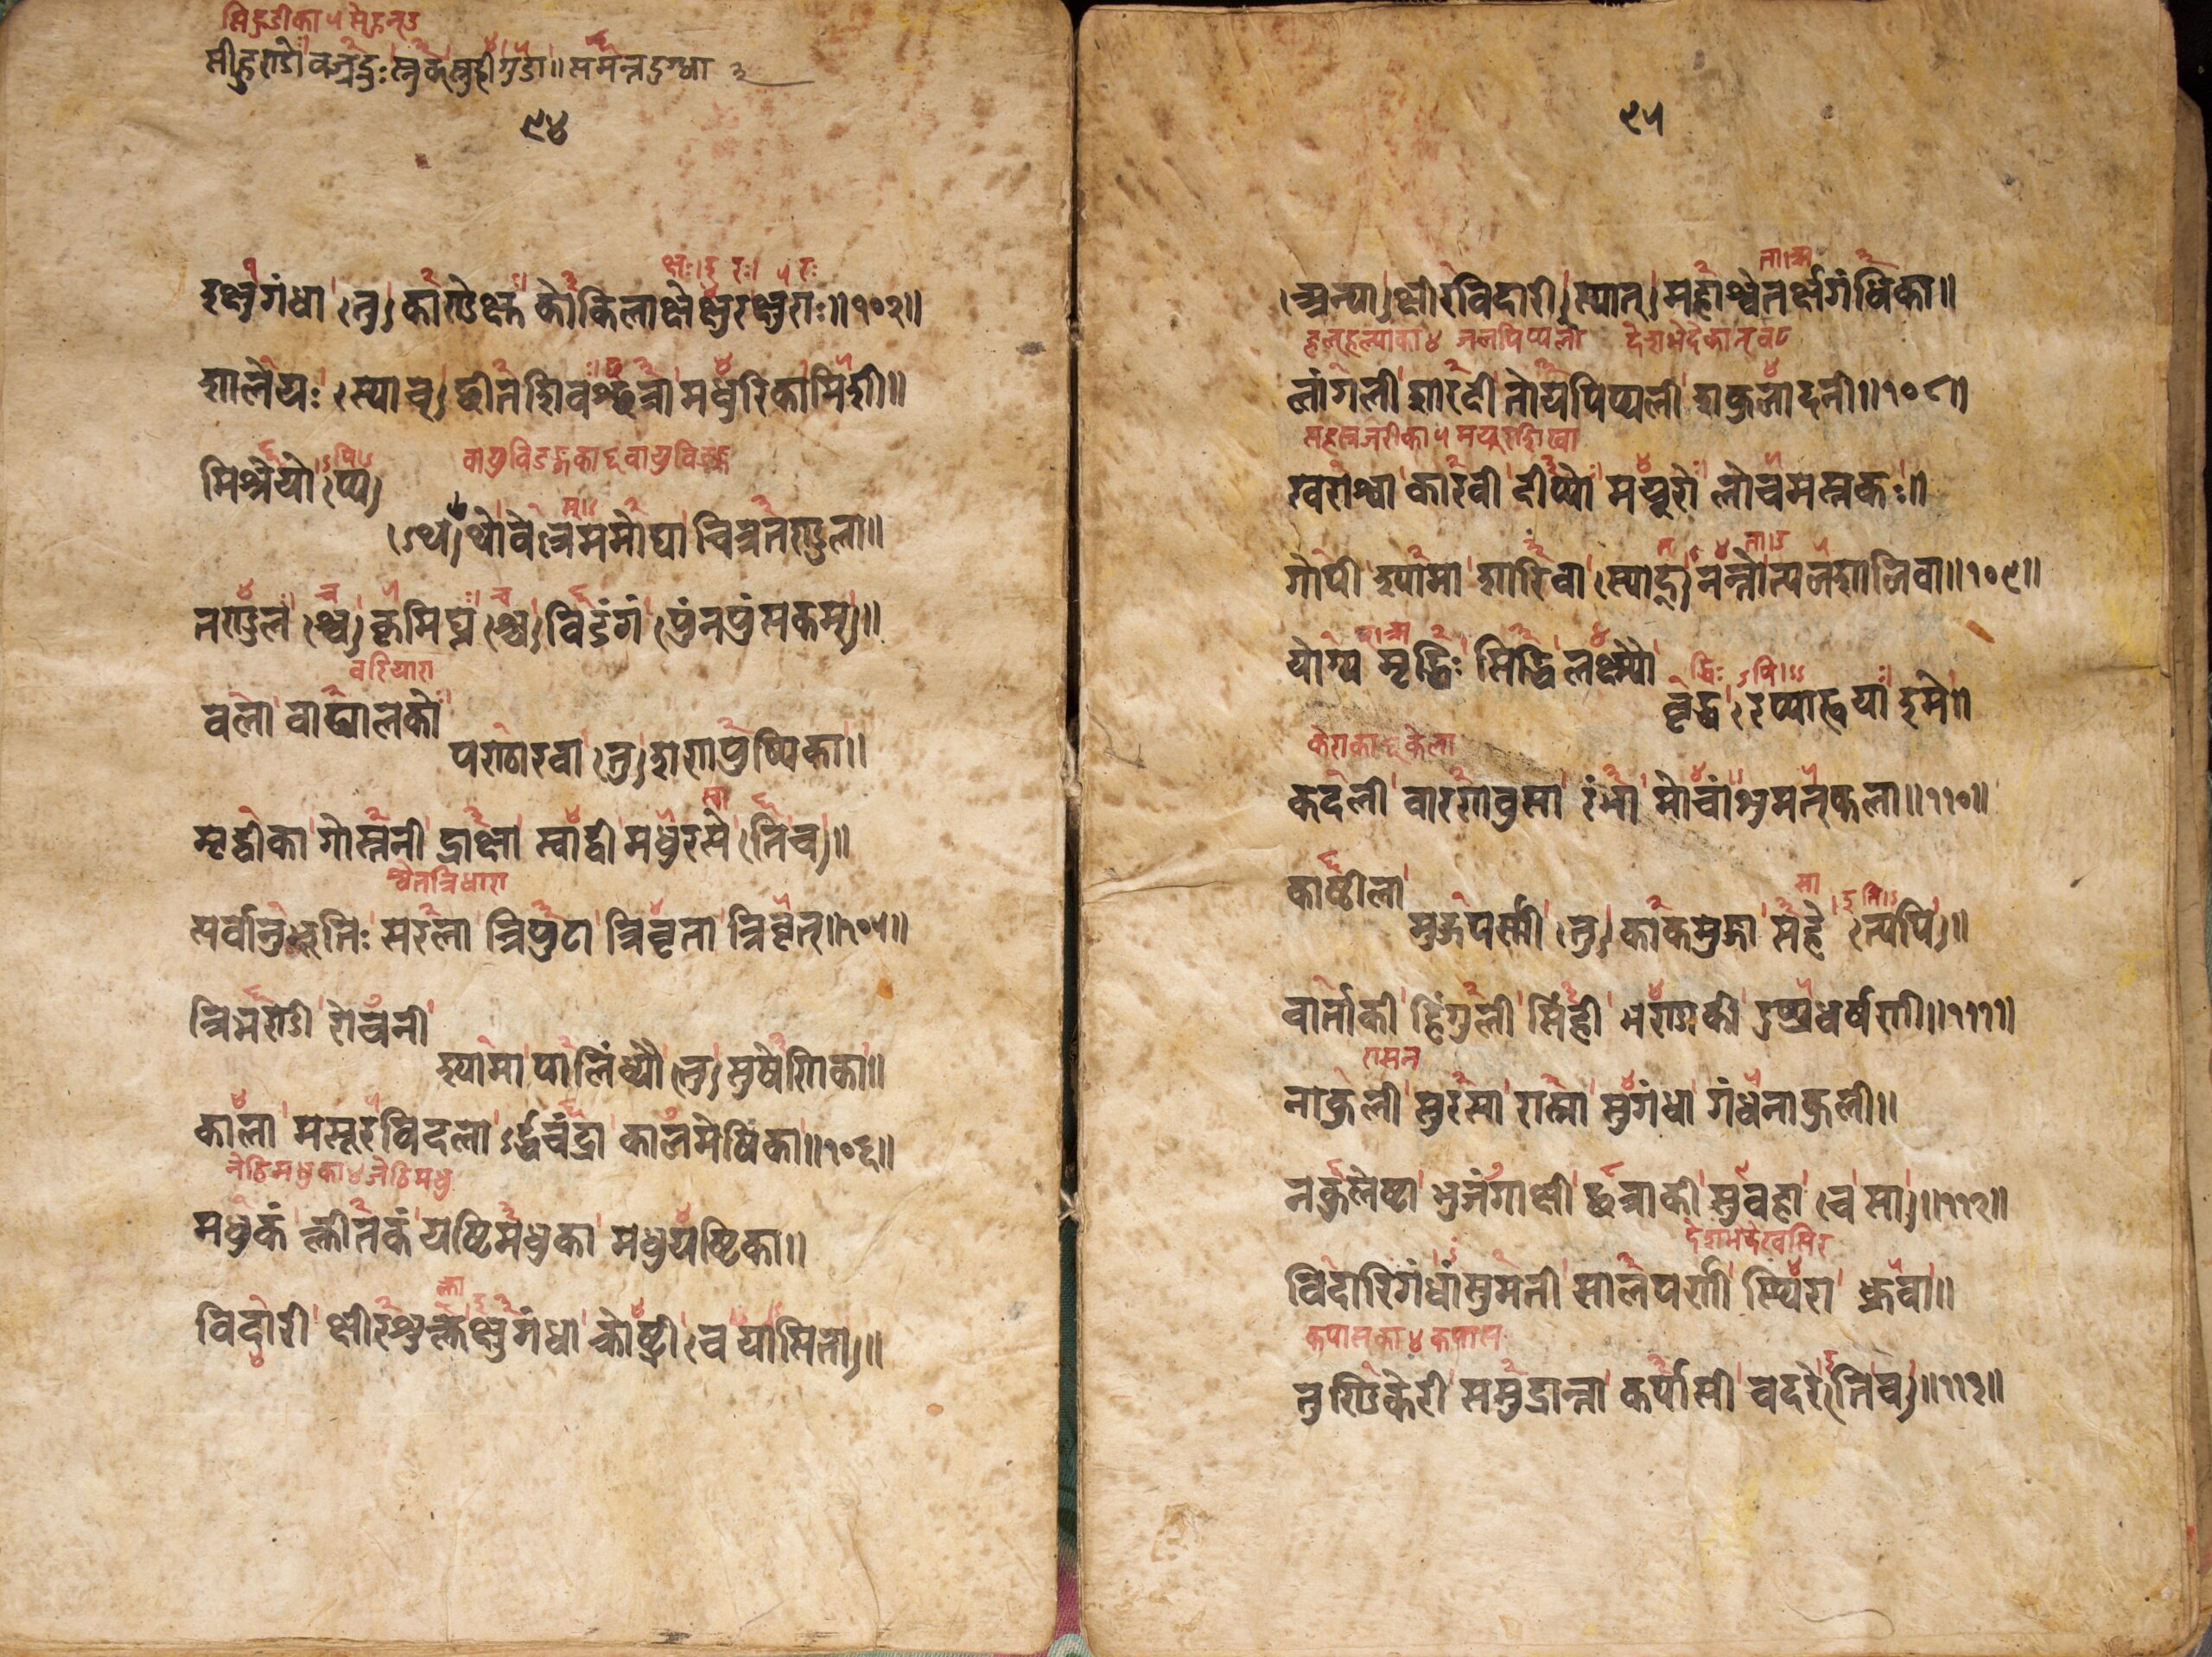 सीहुण्डो वज्रद्रुः स्नुक् स्नुही गुडा॥ समन्तदुग्धा
९४
इक्षुगंधा तु काण्डेक्षु कोकिलाक्षेक्षुरक्षुराः॥१०३॥
शालेयः स्याच्छीतशिवश्छत्रा मधुरिका मिशी॥
मिश्रेयोप्य
ऽथ थो वेत्रममोघा चित्रतण्डुला॥
तण्डुलश्च कृमिघ्नश्च विडंगं पुंनपुंसकम्॥
वरियारा
वला वाद्यालको
घण्टारवा तु शणपुष्पिका॥
मृद्वीका गोस्तनी द्राक्षा स्वाद्वी मधुरसेति च॥
श्वेतत्रिधारा
सर्वानुभूतिः सरला त्रिपुटा त्रिवृता त्रिवृत्॥१०५॥
त्रिभण्डी रोचनी
श्यामा पालिंध्यौ तु सुषेणिका॥
काला मसूरविदला ऽर्द्धचंद्रा कालमेषिका॥१०६॥
जेठिमधुका ४ जेठिमधु
मधुकं क्लीतकं यष्टिमधुका मधुयष्टिका॥
विदारी क्षीरशुक्लेक्षुगंधा क्रोष्ट्री च या सिता॥
९५
अन्या क्षीरविदारी स्यात् महाश्वेतर्क्षगंधिका॥
जलपिप्पली
लांगली शारदी तोयपिप्पली शकुलादनी॥१०८॥
मयूरशिखा
खराश्वा कारवी दीप्यो मयूरो लोचमस्तकः॥
गोपी श्यामा शारिवा स्याद् नन्तोत्पलशालिवा॥१०९॥
योग्य मृद्धिः सिद्धि लक्ष्म्यौ
वृद्धेरप्याह्वया इमे॥
केराका ६ केला
कदली वारणवुसा रंभा मोचांशुमत्फला॥११०॥
काष्ठीला
मुद्गपर्णी तु काकमुद्गा सहेत्यपि॥
वार्ताकी हिंगुली सिंही भण्टाकी दुष्प्रधर्षणी॥१११॥
रासन
नाकुली सुरसा रास्ना सुगंधा गंधनाकुली॥
नकुलेष्टा भुजंगाक्षी छत्राकी सुवहा च सा॥११२॥
विदारिगंधांशुमती सालपर्णी स्थिरा ध्रुवा॥
कपासका ४ कपास
तुण्डिकेरी समुद्रान्ता कर्पासी वदरेति च॥११३॥